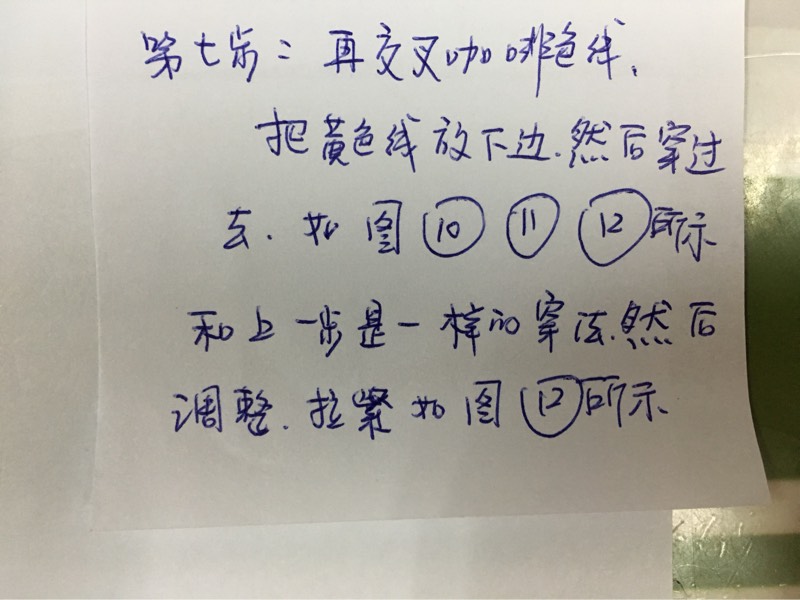 第七步：再交叉咖啡色线，
把黄色线放下边.然后穿过
去.如图⑩⑪⑫所示
和上一步是一样的穿法.然后
调整.拉紧如图⑫所示